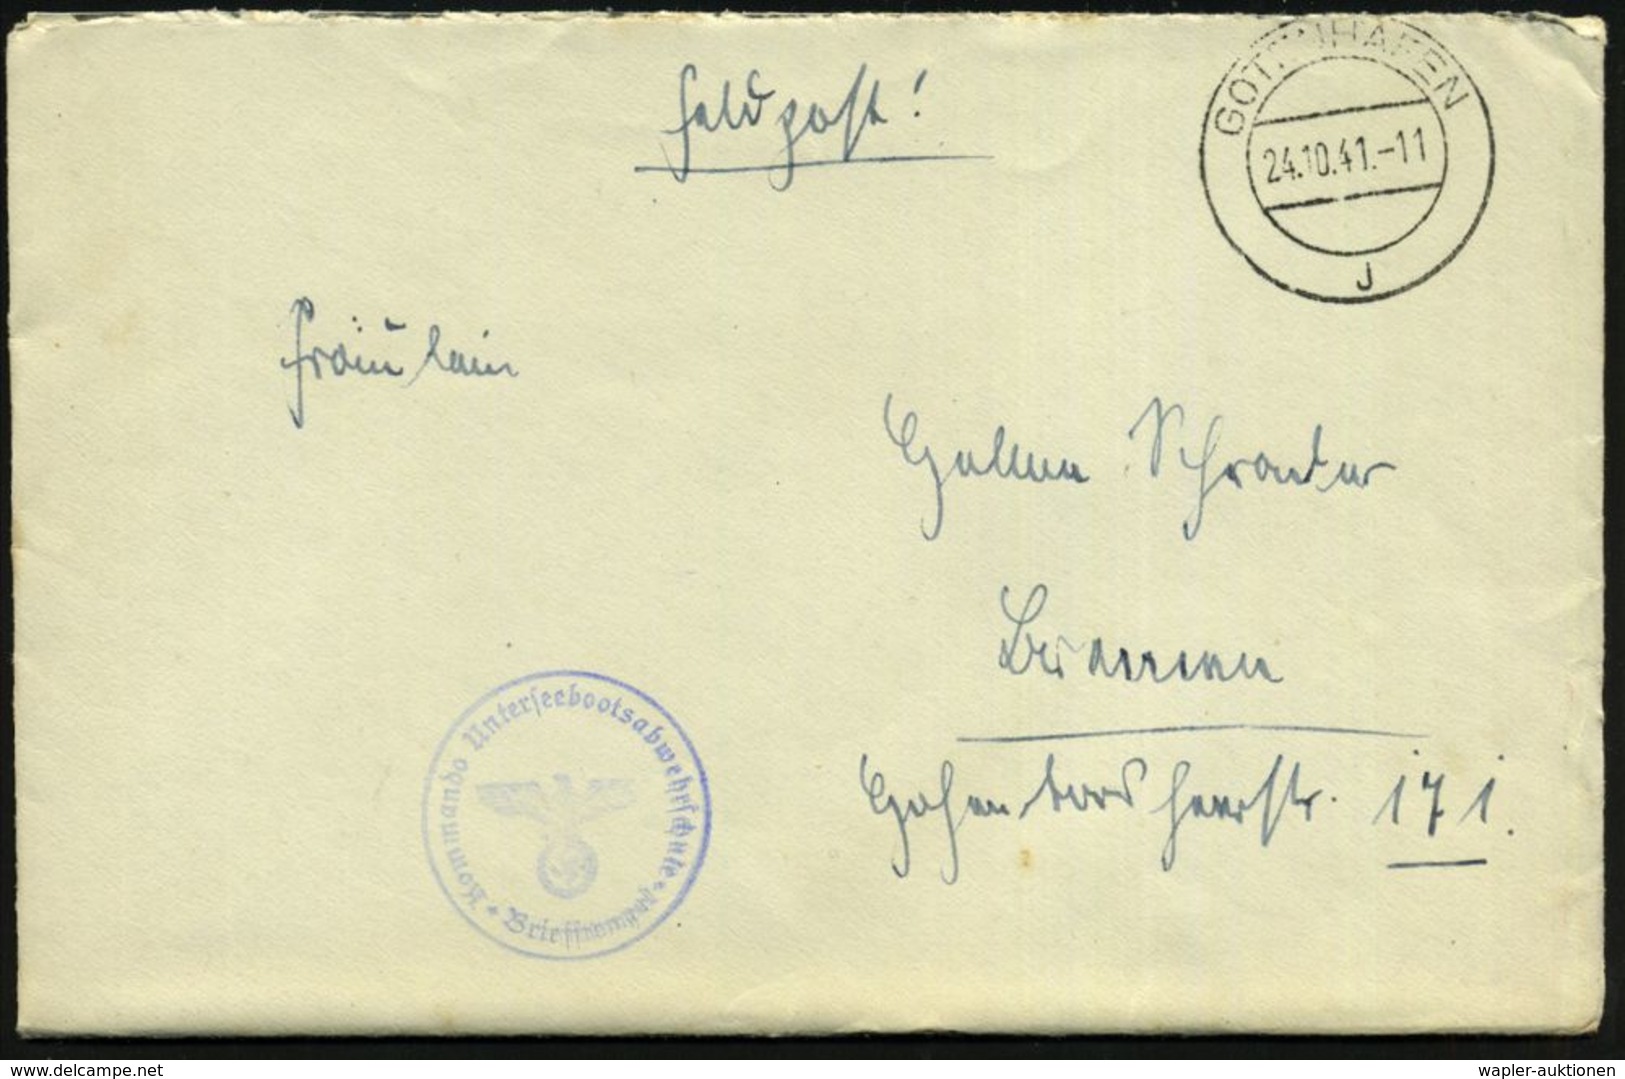 Feldpost!
GOTENHAFEN
24.10.41.-11
J
Fräulein
Schrader
Bremen
Hohentorsheerstr. 171.
Kommando Unterseebootsabwehrschule
* Briefstempel *
delcampe.net
wapler-auktionen